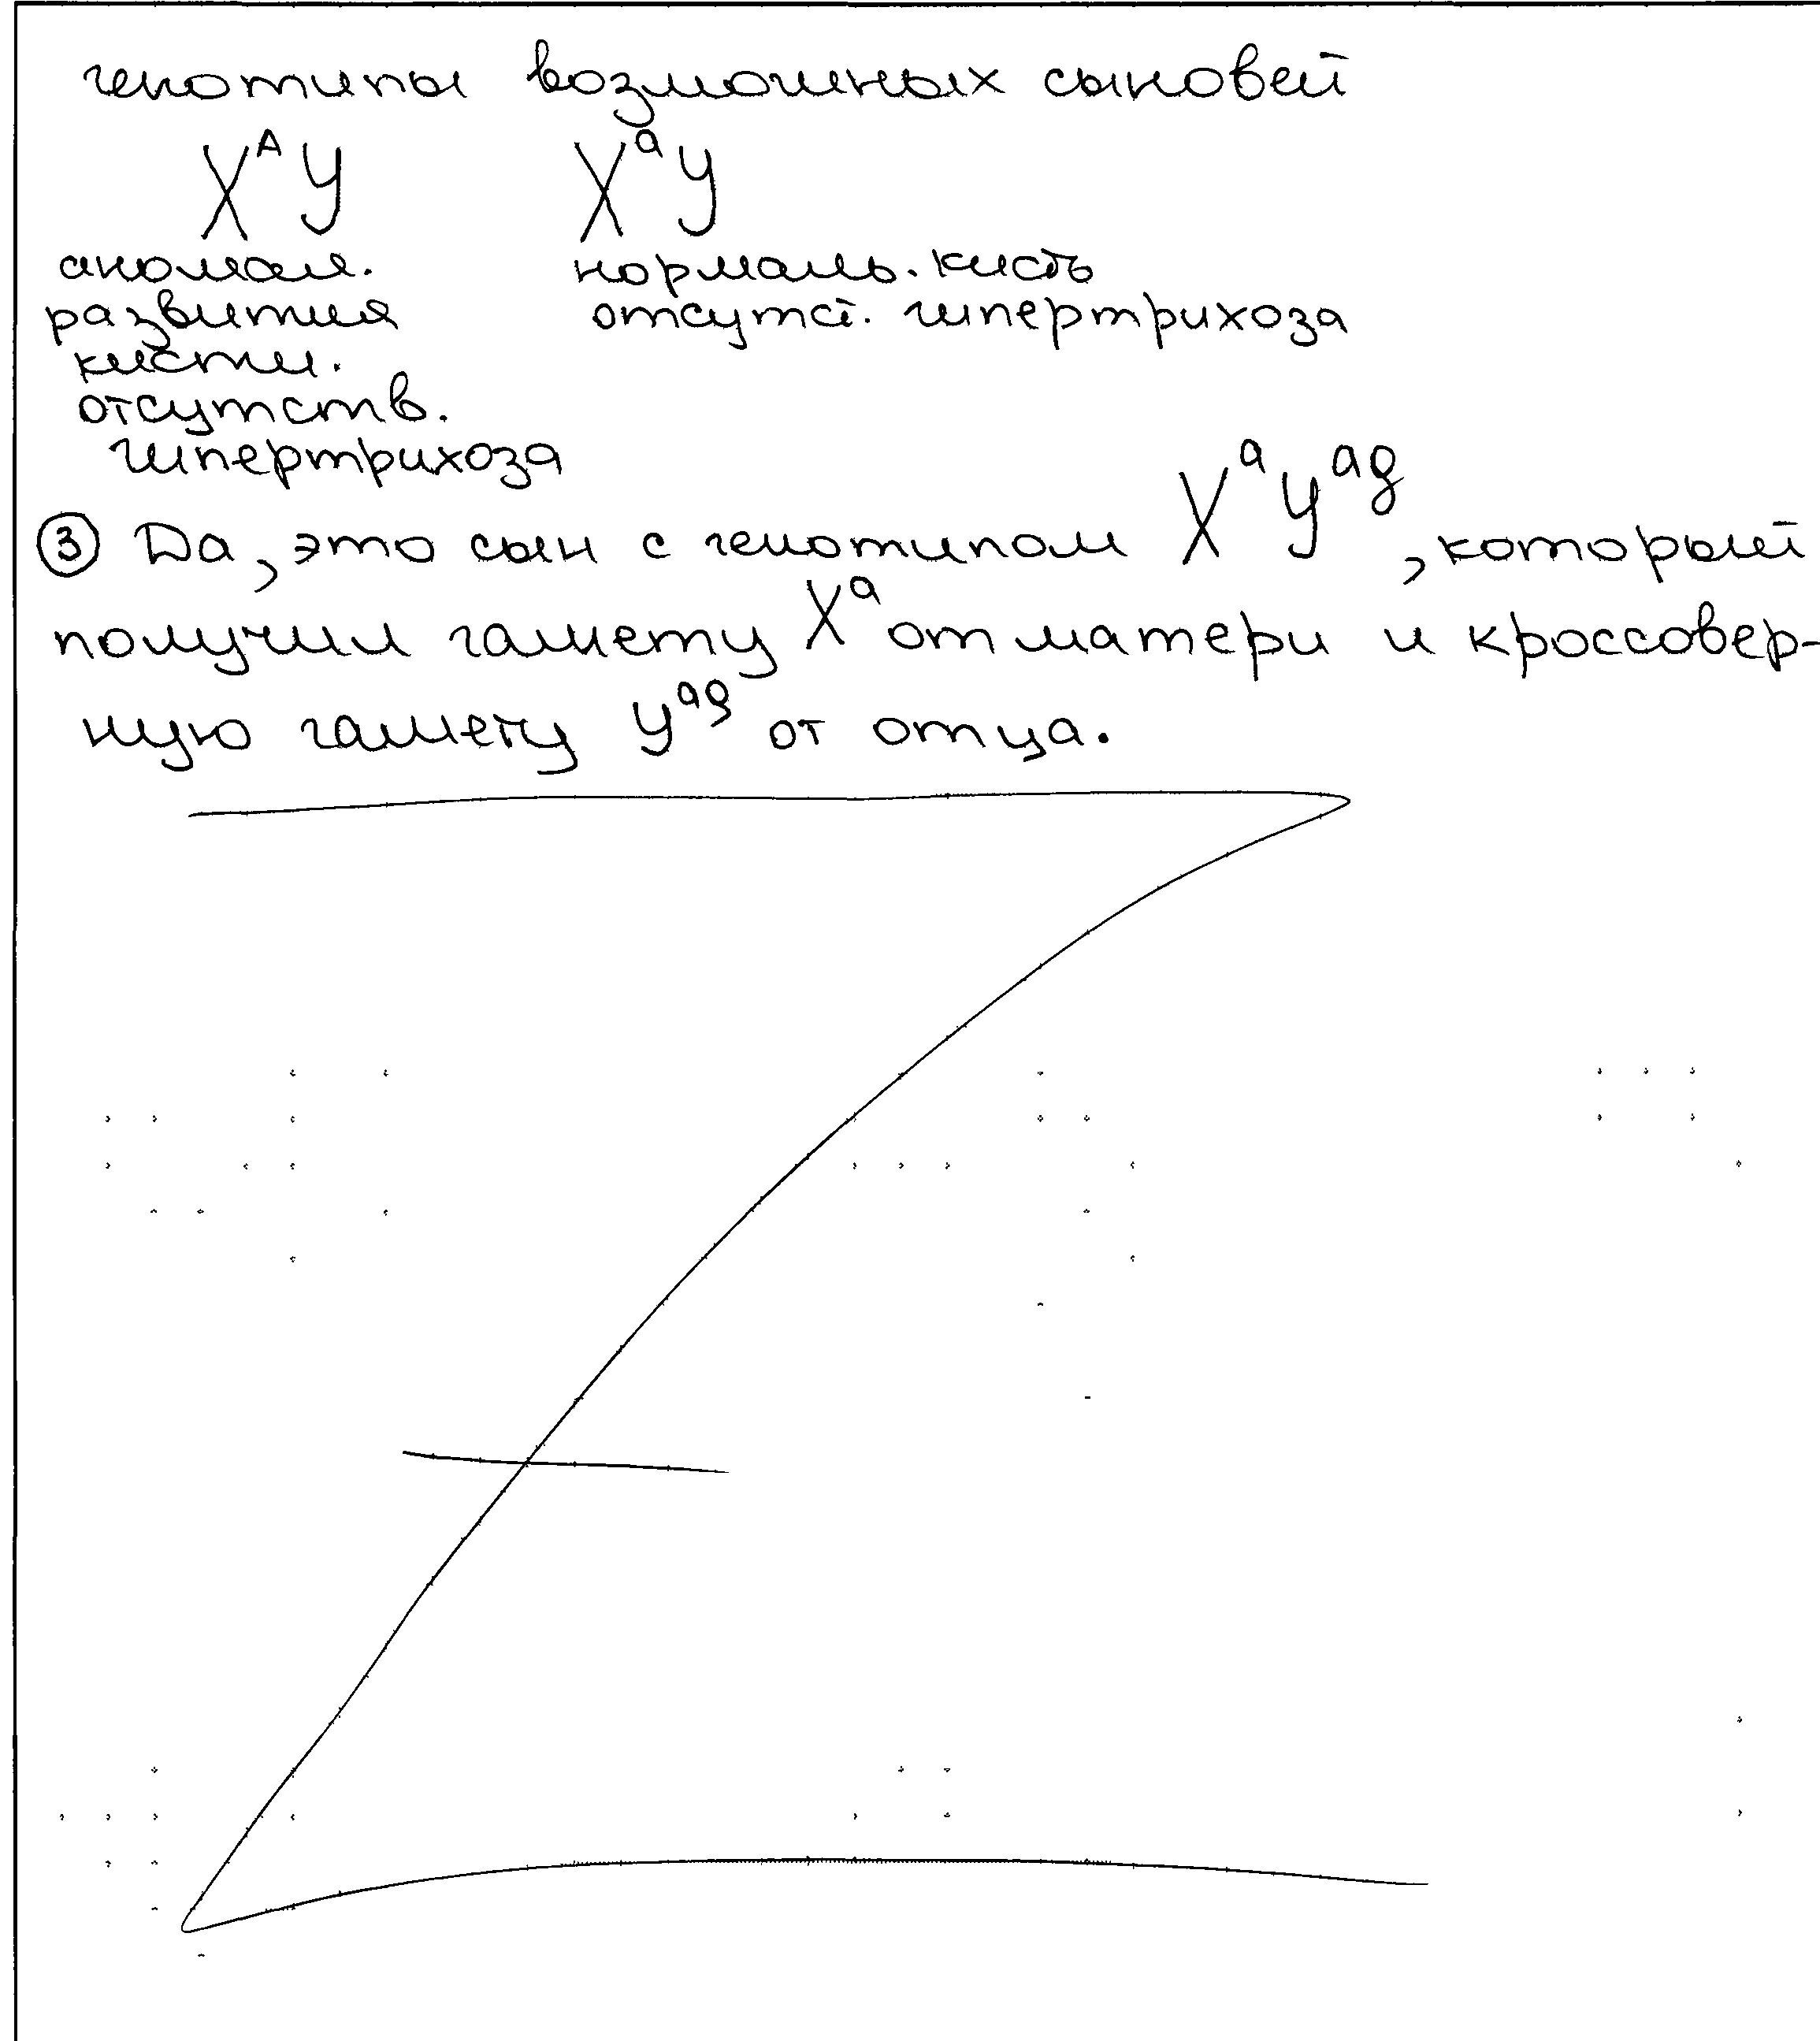 генотипы возможных сыновей
XᴬY XᵃY
аномал. нормаль. кисть
развития отсутст. гипертрихоза
кисти.
отсутств.
гипертрихоза
③ Да, это сын с генотипом XᵃYᵃᵍ, который
получил гамету Xᵃ от матери и кроссовер-
ную гамету Yᵃᵍ от отца.